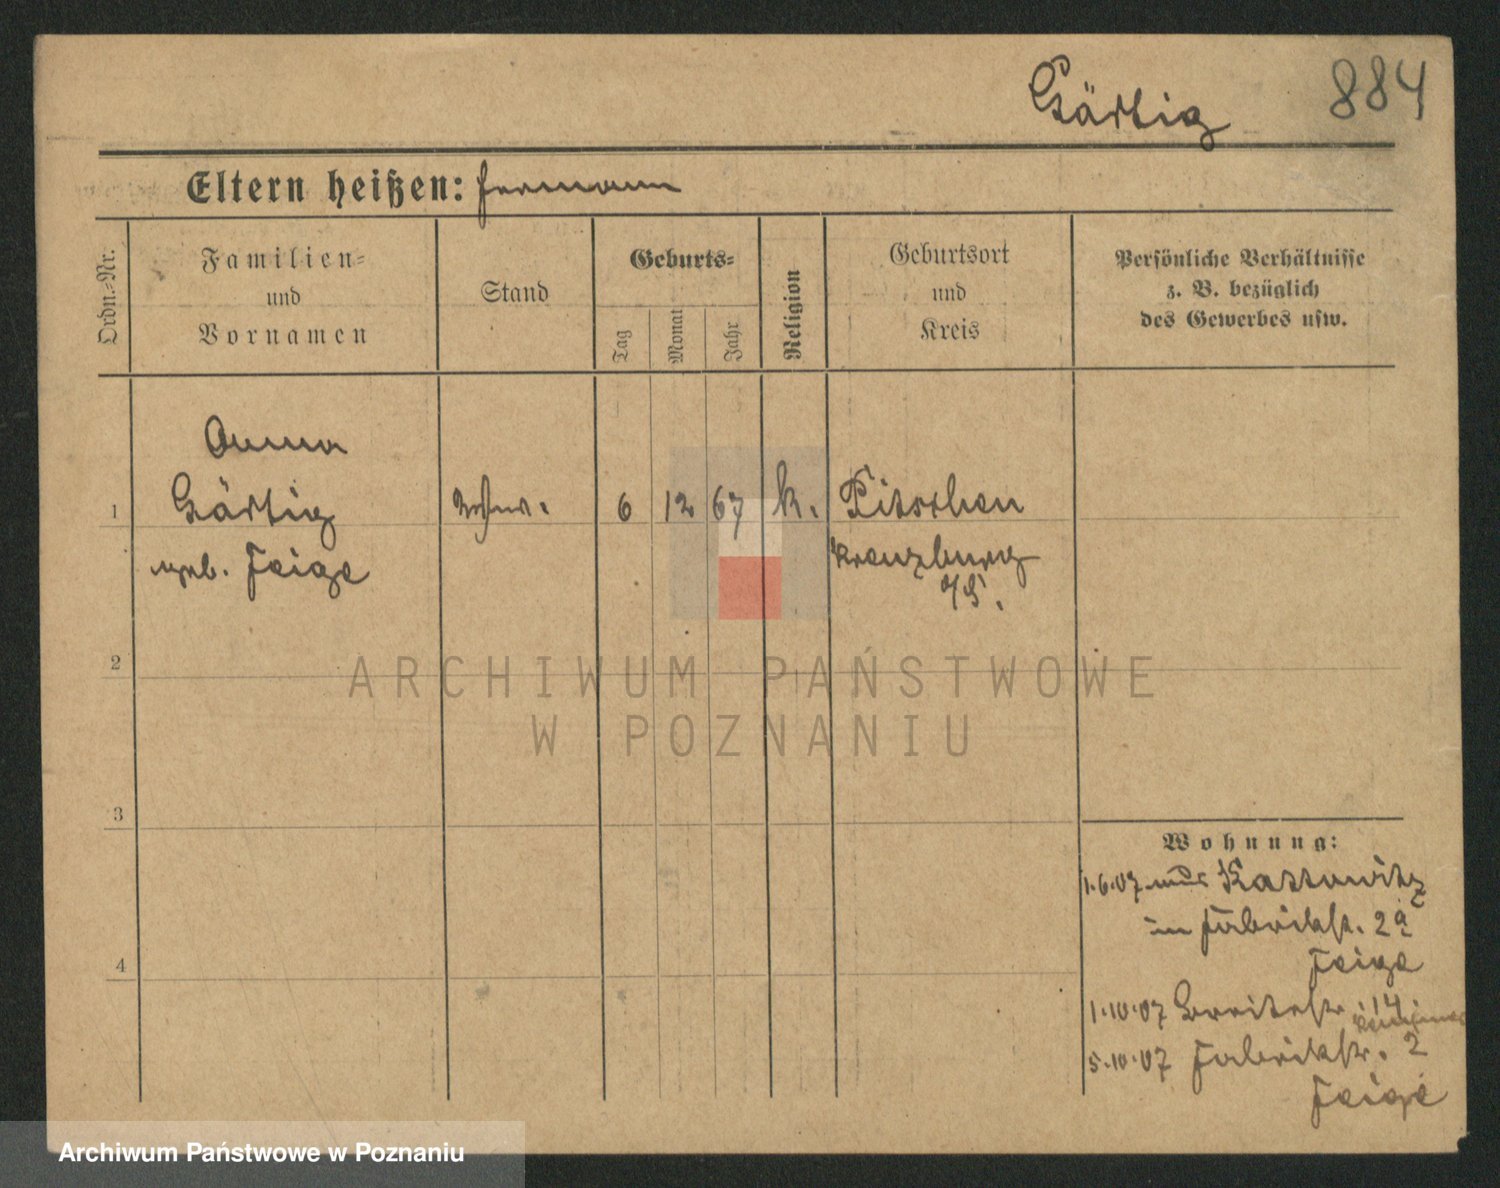 Gärtig 884
Eltern heißen: Hermann
Ordn.-Nr.
Familien-
und
Vornamen
Stand
Geburts-
Tag
Monat
Jahr
Religion
Geburtsort
und
Kreis
Persönliche Verhältnisse
z. B. bezüglich
des Gewerbes usw.
Anna
1 Gärtig 6 12 67 k. Pitschen
geb. Feige Kreuzburg
O/S.
2
3
4
Wohnung:
1.6.07 aus Kattowitz
in Fabrikstr. 2a
Feige
1.10.07 Breitestr. 14
5.10.07 Fabrikstr. 2
Feige
ARCHIWUM PAŃSTWOWE
W POZNANIU
Archiwum Państwowe w Poznaniu